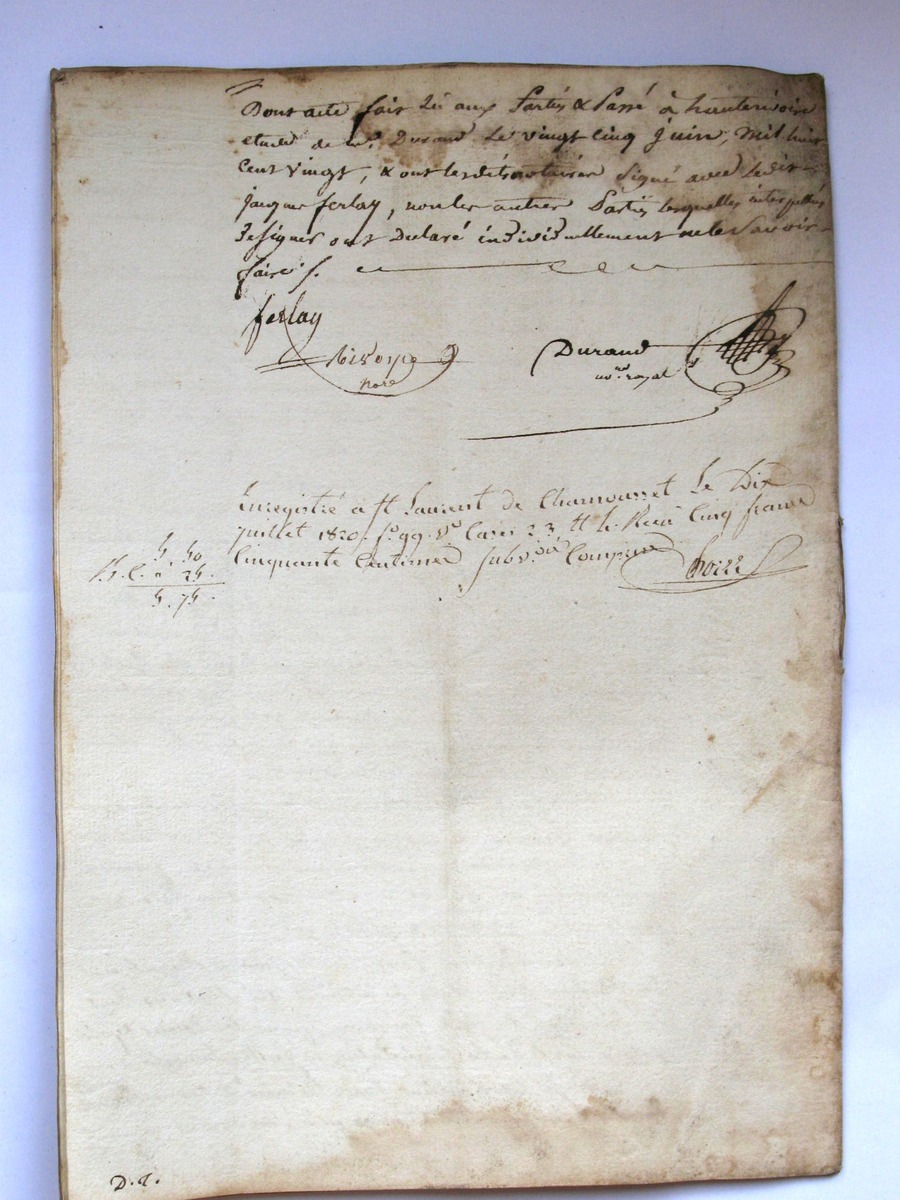 Dont acte fait lû aux Parties & Passé à hauterivoire
etude de Me. Durand Le vingt cinq Juin, mil huit
Cent vingt, & ont lesdits notaires signé avec ledit
Jacques ferlay, non les autres Parties lesquelles interpellées
de signer ont Déclaré individuellement ne le savoir
faire /.
ferlay
Durand
nore
nore. royal
Enregistré a St Laurent de Chamousset Le Dix
juillet 1820. fo. 99. vo Cases 2 3 Recu Cinq francs
Cinquante Centimes subvon Comprise
5. 50
25.
5. 75.
D. t.